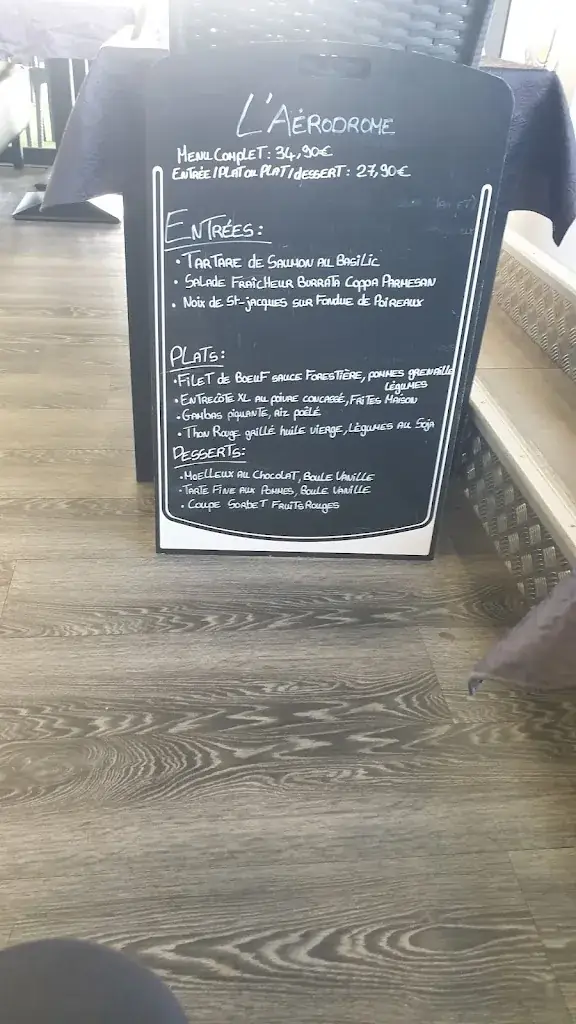 L'AÉRODROME
MENU COMPLET : 34,90€
ENTRÉE/PLAT OU PLAT/DESSERT : 27,90€
ENTRÉES :
• TARTARE DE SAUMON AU BASILIC
• SALADE FRAÎCHEUR BURRATA COPPA PARMESAN
• NOIX DE ST-JACQUES SUR FONDUE DE POIREAUX
PLATS :
• FILET DE BOEUF SAUCE FORESTIÈRE, POMMES GRENAILLE
LÉGUMES
• ENTRECÔTE XL AU POIVRE CONCASSÉ, FRITES MAISON
• GAMBAS PIQUANTE, RIZ POÊLÉ
• THON ROUGE GRILLÉ HUILE VIERGE, LÉGUMES AU SOJA
DESSERTS :
• MOELLEUX AU CHOCOLAT, BOULE VANILLE
• TARTE FINE AUX POMMES, BOULE VANILLE
• COUPE SORBET FRUITS ROUGES